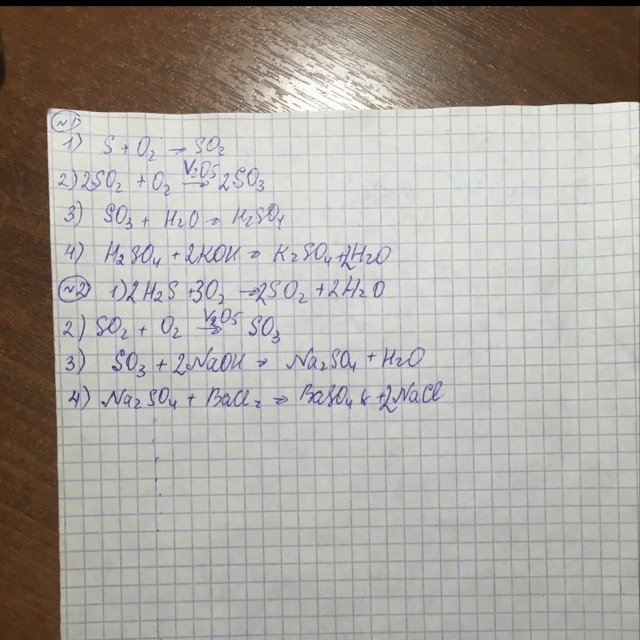 №1
1) S + O₂ → SO₂
2) 2SO₂ + O₂ V₂O₅→ 2SO₃
3) SO₃ + H₂O → H₂SO₄
4) H₂SO₄ + 2KOH → K₂SO₄ + 2H₂O
№2 1) 2H₂S + 3O₂ → 2SO₂ + 2H₂O
2) SO₂ + O₂ V₂O₅→ SO₃
3) SO₃ + 2NaOH → Na₂SO₄ + H₂O
4) Na₂SO₄ + BaCl₂ → BaSO₄↓ + 2NaCl